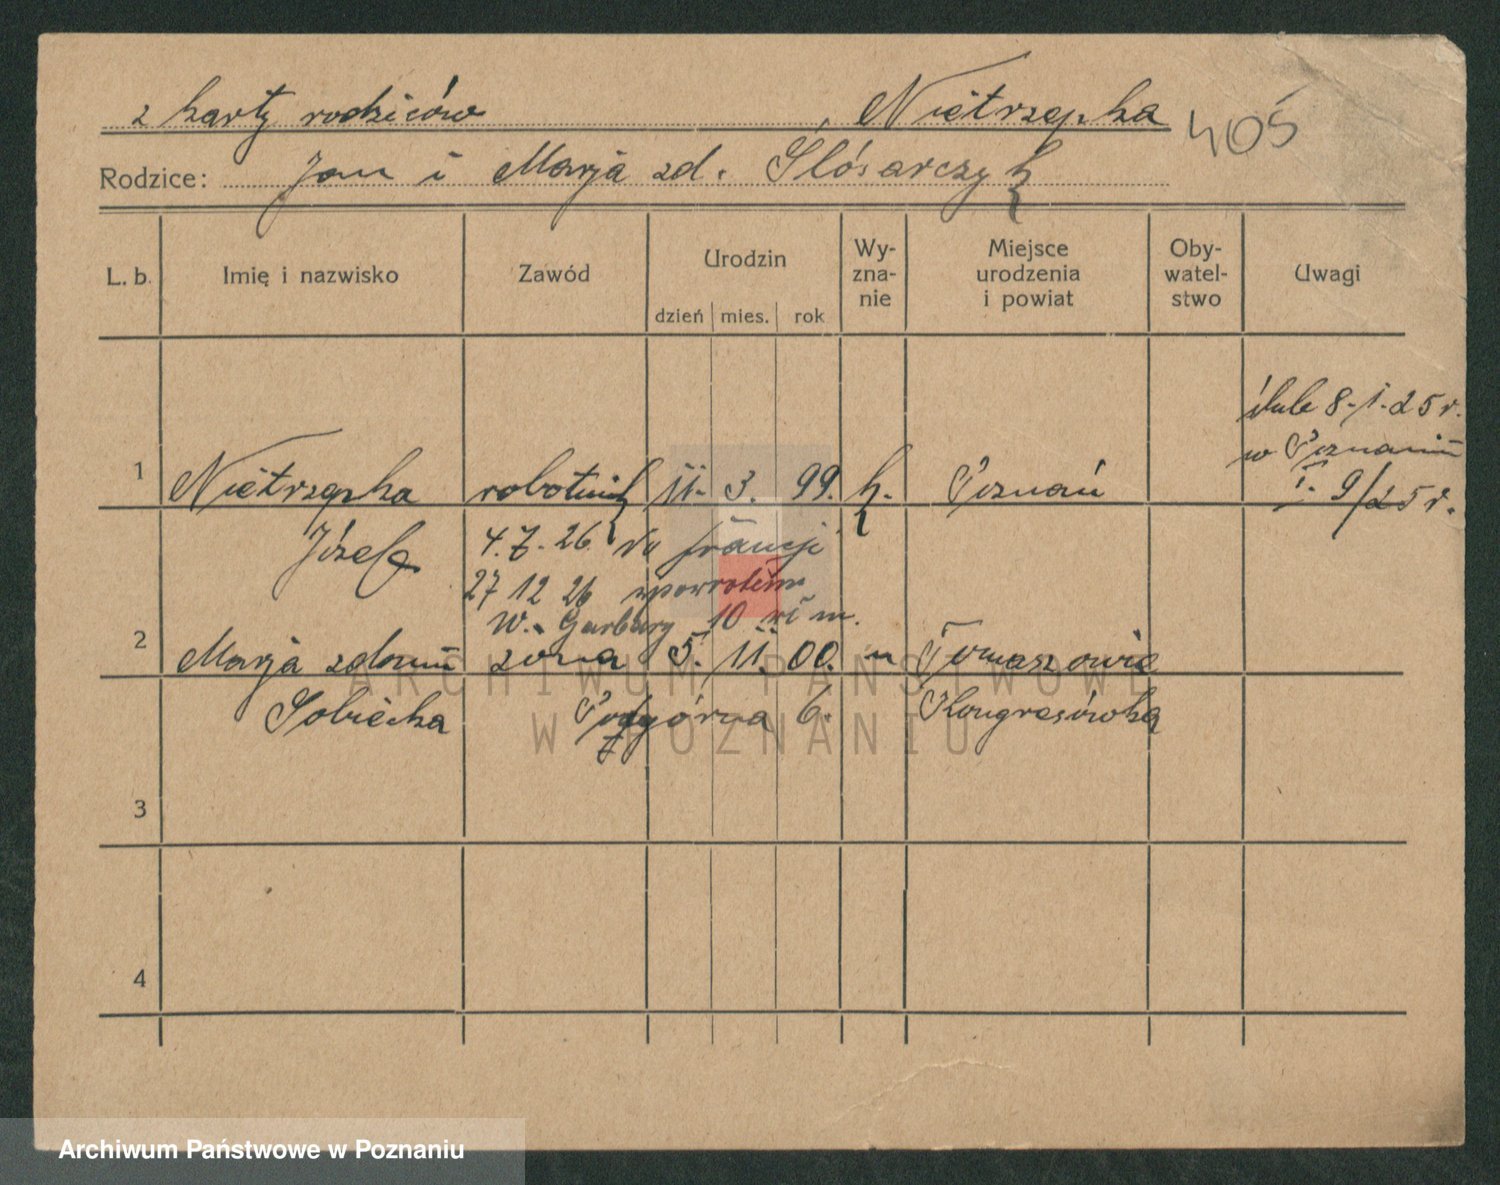 z karty rodziców , Nietrzepka 405
Rodzice: Jan i Marja zd. Ślósarczyk
L. b. Imię i nazwisko Zawód Urodzin Wy-zna-nie Miejsce urodzenia i powiat Oby-watel-stwo Uwagi
dzień mies. rok
ślub 8-1-25 r.
w Poznaniu
1 Nietrzepka robotnik 11. 3. 99. k. Poznań 1. 9/25 r.
Józef 4.7.26 do francji
27 12 26 zpowrotem
W. Garbary 10 VI m.
2 Marja zdomu żona 5. 11. 00. " Tomaszowie
Sobiecka Podgórna 6. Kongresówka
3
4
ARCHIWUM PAŃSTWOWE
W POZNANIU
Archiwum Państwowe w Poznaniu